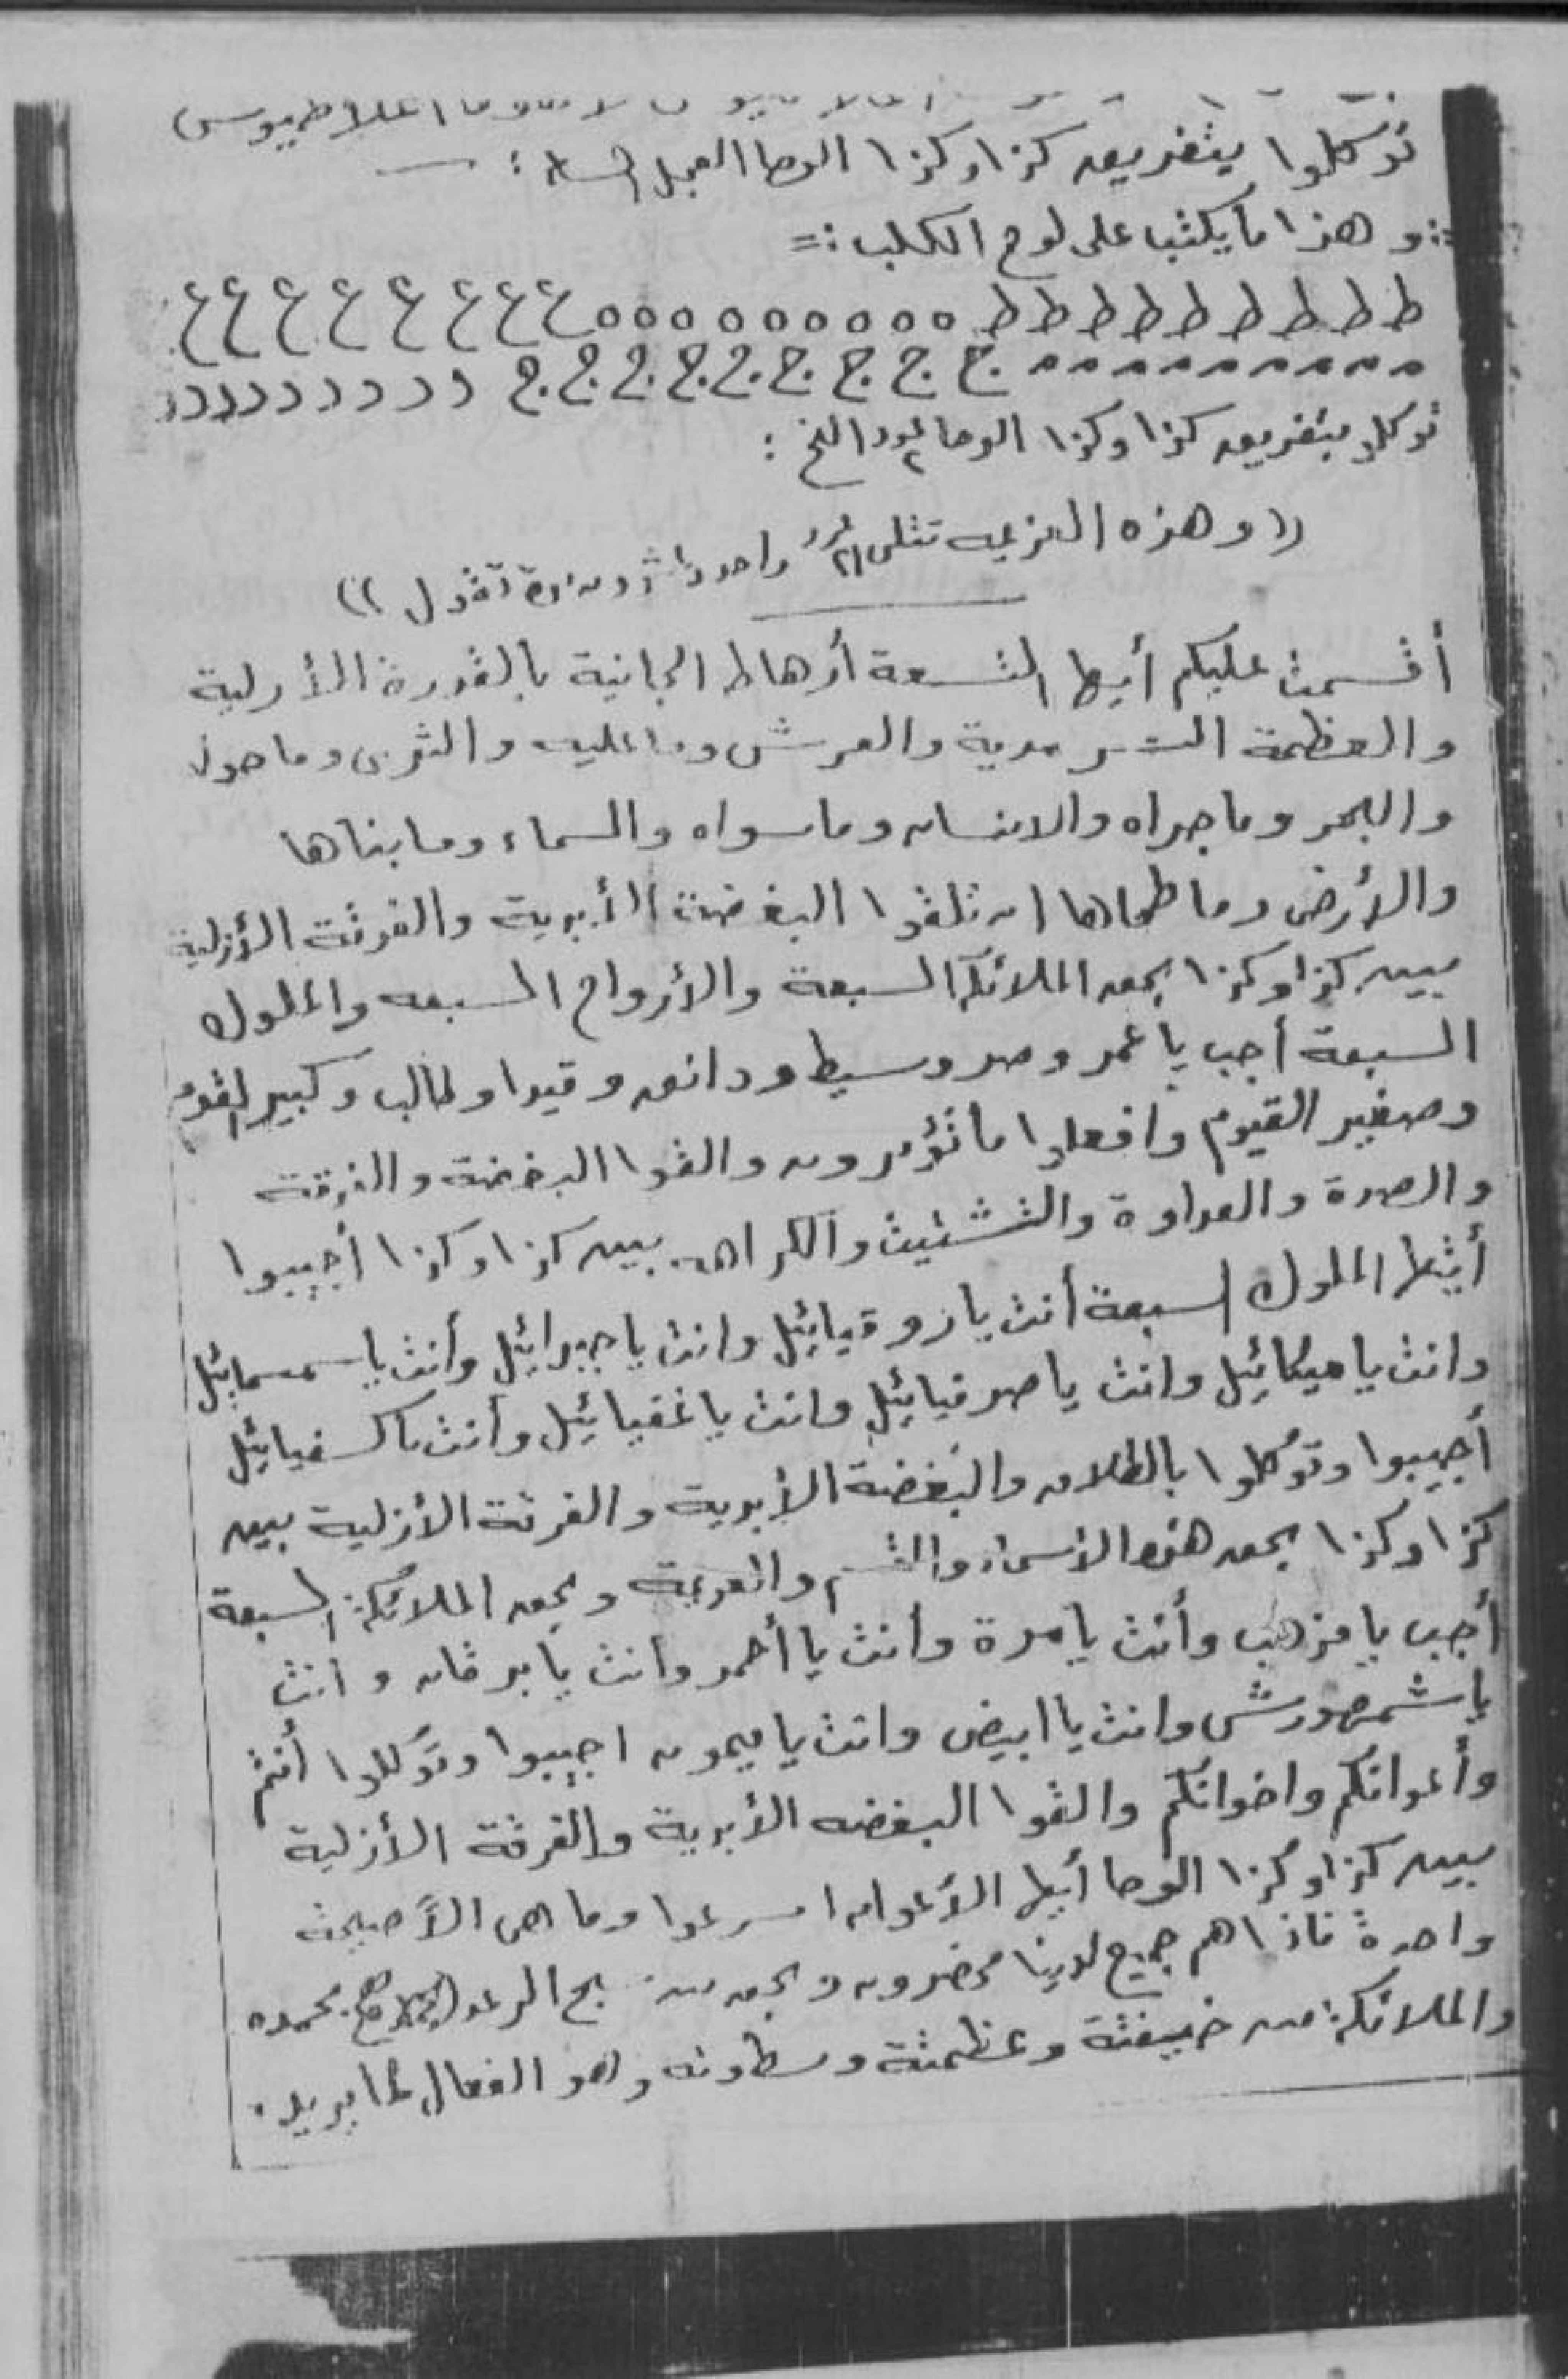 توكلوا بتفريق كذا وكذا الوحا العجل الساعة :
:: و هذا ما يكتب على لوح الكلب :=
ط ط ط ط ط ط ط ط ط ه ه ه ه ه ه ه ه ه ع ع ع ع ع ع ع ع
ج ج ج ج ج ج ج ج ج د د د د د د د د د
توكلو بتفريق كذا وكذا الوحا الخ :
(( و هذه العزيمه تتلى ٢١ تقول ))
أقسمت عليكم أيها التسعة أرهاط الجانية بالقدرة الأولية
والعظمة السرمدية والعرش وما عليه والثرى وما حوله
والبحر وما جراه والانسان وما سواه والسماء وما بناها
والأرض وما طحاها ان تلقوا البغضة الأبدية والفرقة الأزلية
بين كذا وكذا بحق الملائكة السبعة والأرواح السبعه والملوك
السبعة أجب يا عمرو صر وسيط و دانق و قيدا و طالب و كبير القوم
وصغير القيوم وافعلوا ما تؤمرون والقوا البغضة والفرقة
والصدة والعداوة والتشتيت والكراهه بين كذا وكذا أجيبوا
أيتها الملوك السبعة أنت يا روقيائيل وانت يا جبرائيل وأنت يا سمسمائيل
وانت يا ميكائيل وانت يا صرفيائيل وانت يا عنيائيل وأنت يا كسفيائيل
أجيبوا وتوكلوا بالطلاق والبغضة الأبدية والفرقة الأزلية بين
كذا وكذا بحق هذه الأسماء والقسم والعزيمة وبحق الملائكة السبعة
أجب يا مذهب وأنت يا مرة وانت يا أحمر وانت يا برقان و انت
يا شمهورش وانت يا ابيض وانت يا ميمون اجيبوا وتوكلوا أنتم
وأعوانكم واخوانكم والقوا البغضه الأبدية والفرقة الأزلية
بين كذا وكذا الوحا أيها الأعوان اسرعوا وما هى الا صيحة
واحدة فاذا هم جميع لدينا محضرون و بحق من يسبح الرعد بحمده
والملائكة من خيفتة وعظمتة وسطوته وهو الفعال لما يريد .